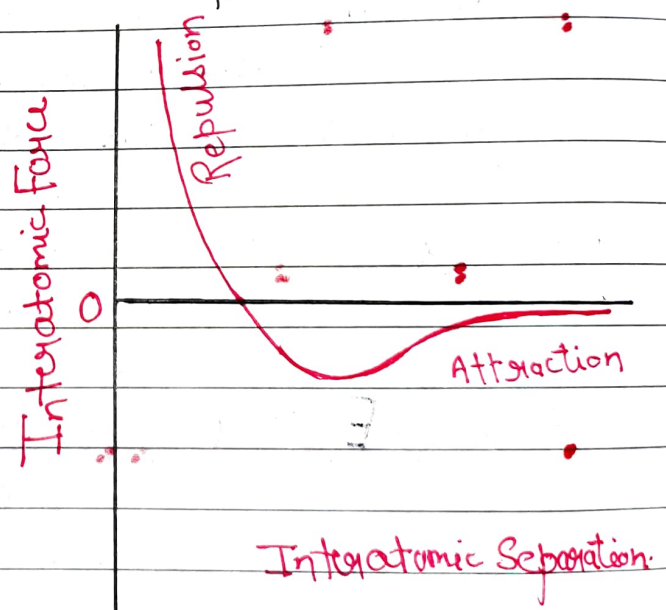 Interatomic Force
Repulsion
O
Attraction
Interatomic Separation.